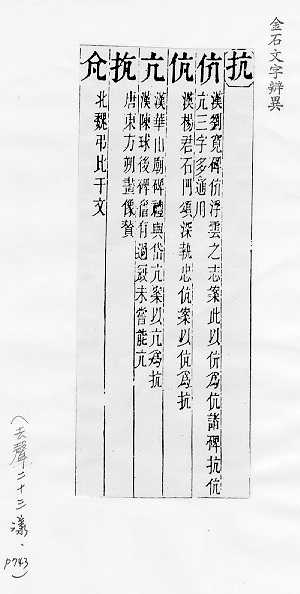 金石文字辨異
抗
伉 漢劉寬碑伉浮雲之志案此以伉爲伉諸碑抗伉
亢三字多通用
伉 漢楊君石門頌深執忠伉案以伉爲抗
亢 漢華山廟碑禮與岱亢案以亢爲抗
漢陳球後碑舊有過寇未嘗能亢
抗 唐東方朔畫像贊
北魏弔比干文
(去聲二十三漾．P743)